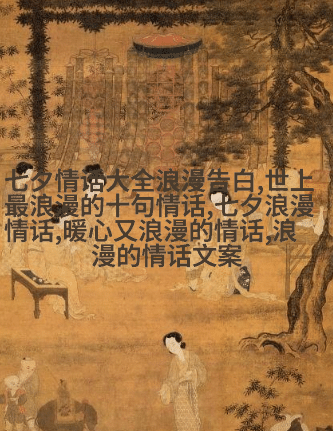 七夕情话大全浪漫告白,世上
最浪漫的十句情话,七夕浪漫
情话,暖心又浪漫的情话,浪
漫的情话文案